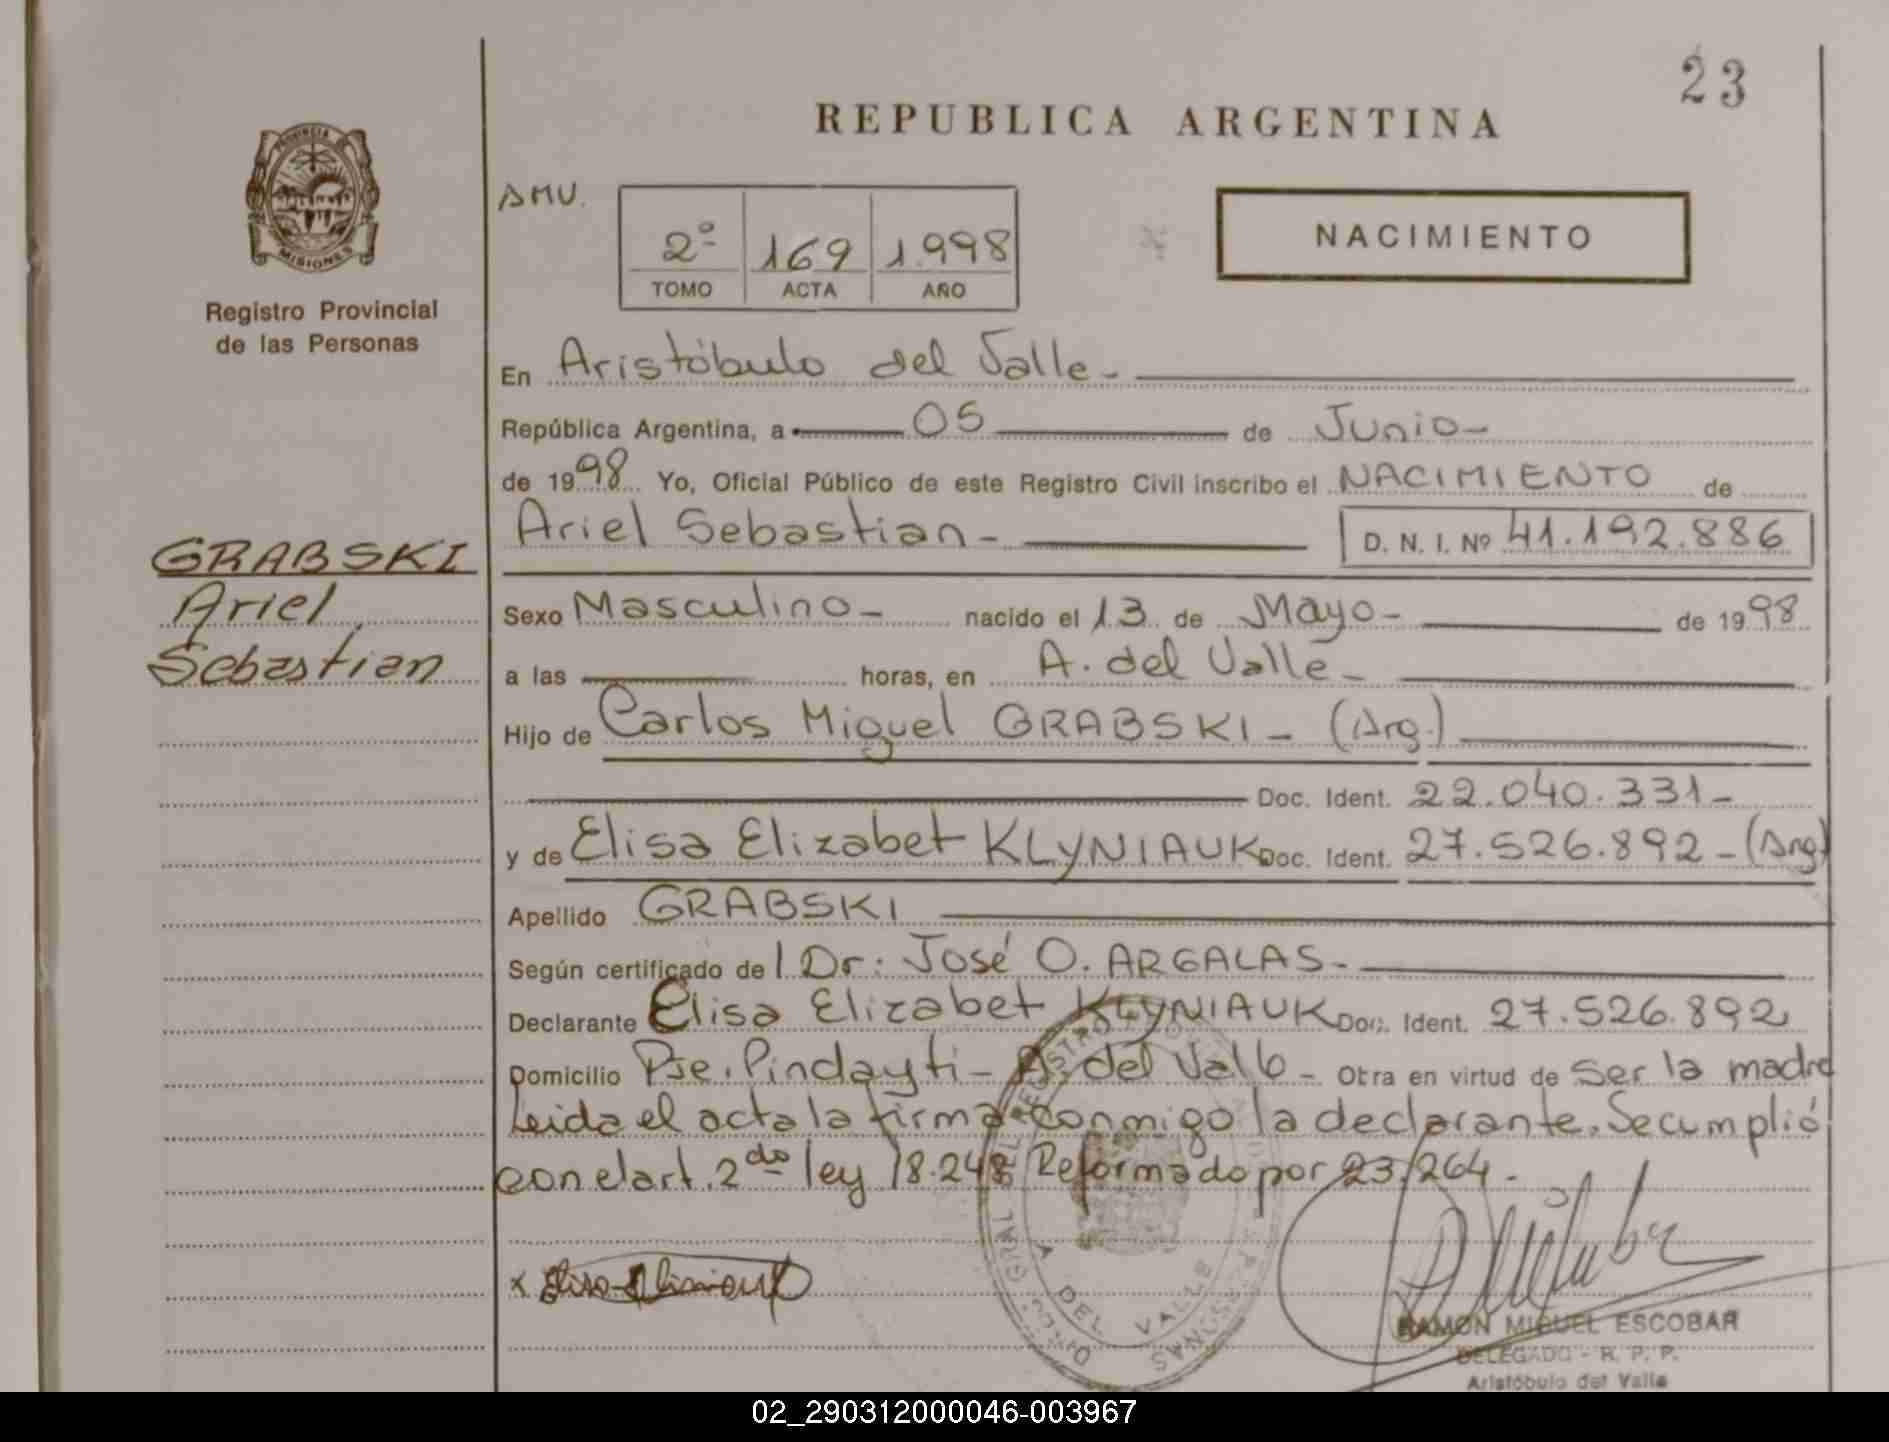 23
REPUBLICA ARGENTINA
PROVINCIA DE
MISIONES
Registro Provincial
de las Personas
AMU.
2º 169 1.998
TOMO ACTA AÑO
NACIMIENTO
En Aristóbulo del Valle -
República Argentina, a 05 de Junio -
de 1998 Yo, Oficial Público de este Registro Civil inscribo el NACIMIENTO de
Ariel Sebastian - D. N. I. Nº 41.192.886
GRABSKI
Ariel
Sebastian
Sexo Masculino - nacido el 13 de Mayo - de 1998
a las horas, en A. del Valle -
Hijo de Carlos Miguel GRABSKI - (Arg.)
Doc. Ident. 22.040.331 -
y de Elisa Elizabet KLYNIAUK Doc. Ident. 27.526.892 - (Arg)
Apellido GRABSKI
Según certificado de l Dr: José O. ARGALAS -
Declarante Elisa Elizabet KLYNIAUK Doc. Ident. 27.526.892
Domicilio Pje. Pindayti - A. del Valle - Otra en virtud de Ser la madre
Leida el acta la firma conmigo la declarante. Se cumplió
con el art. 2do ley 18.248 Reformado por 23.264 -
x
A DEL VALLE
RAMON MIGUEL ESCOBAR
DELEGADO - R. P. P.
Aristóbulo del Valle
02_290312000046-003967